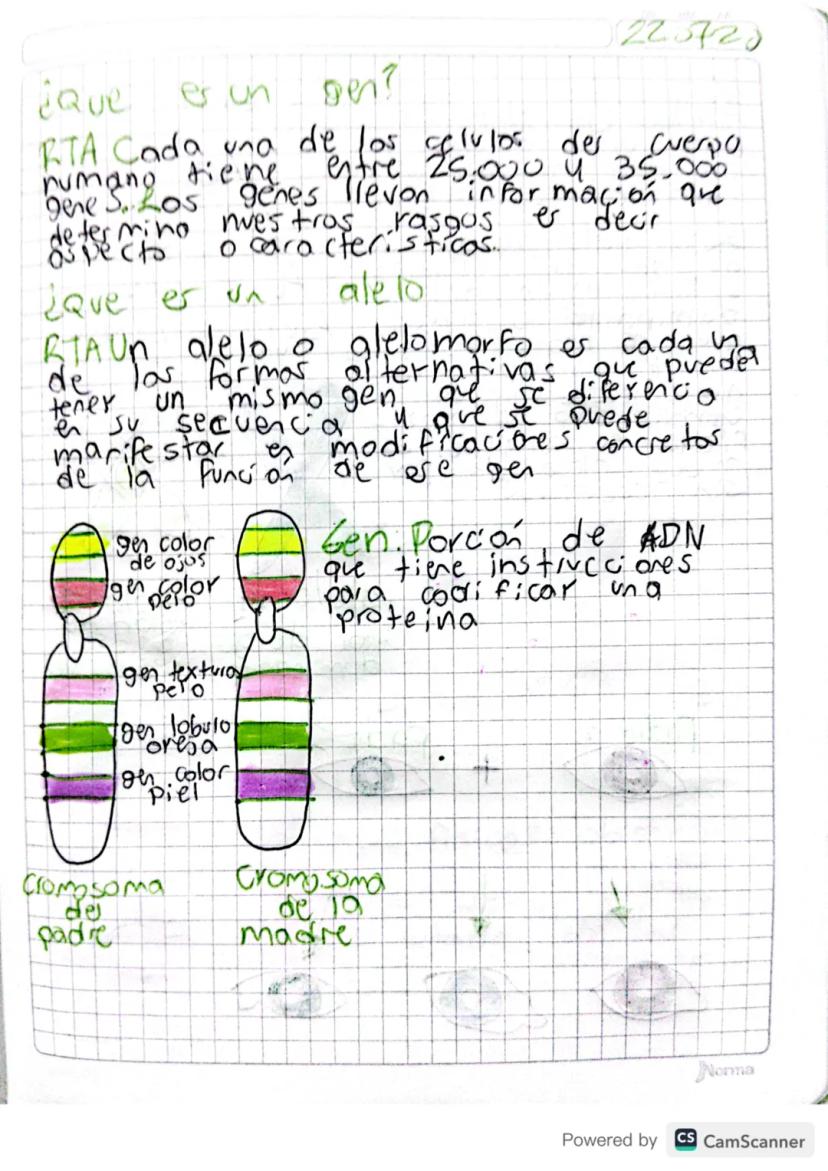 ¿Que es un gen?
RTA Cada una de los celulos del cuerpo
humano tiene entre 25.000 y 35.000
genes. Los genes llevon información que
determino nuestros rasgos es decir
aspecto o características.
¿Que es un alelo
RTA Un alelo o alelomorfo es cada una
de los formas alternativas que puede
tener un mismo gen que se diferencia
en su secuencia y que se puede
manifestar en modificaciones concretos
de la función de ese gen
gen color
de ojos
gen color
pelo
gen textura
pelo
gen lobulo
oreja
gen color
piel
Gen. Porción de ADN
que tiene instrucciones
para codificar una
proteina
+
Cromosoma
del
padre
Cromosoma
de la
madre
Norma
Powered by CS CamScanner